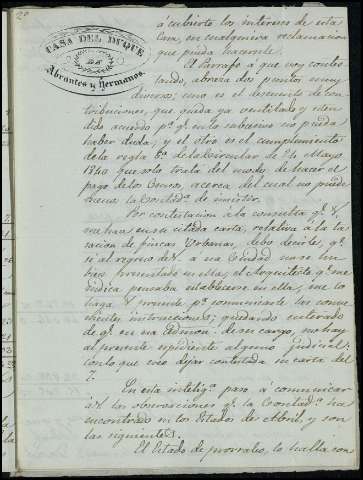 CASA DEL DUQUE
DE
Abrantes y Hermanos.
á cubierto los intereses de esta
Casa, en cualquiera reclamacion
que pueda hacersele.
El Parrafo á que voy contes
tando, abraza dos puntos muy
diversos; uno es el descuento de con
tribuciones, que queda ya ventilado y
acuerdo pª qe en lo subcesivo no pueda
haber duda; y el otro es el cumplimiento
de la regla 5ª de la Circular de 24 Mayo
1840 que solo trata del modo de hacer el
pago de los Censos, acerca del cual no puede
menos la Contadª de insistir.
Por contestacion á la consulta qe V.
me hace en su citada carta, relativa á la ta
sacion de fincas Urbanas, debo decirle, qe
si al regreso de V. á esa Ciudad no se hu
biese presentado en ella, el Arquitecto qe me
indica pensaba establecerse en ella, me lo
haga V. presente pª comunicarle las conve
nientes instrucciones; quedando enterado
de qe en esa Admon. de su cargo, no hay
al presente espediente alguno judicial:
con lo que creo dejar contestada su carta del
7.
En esta inteligª paso á comunicar
á V. las observaciones qe la Contadª ha
encontrado en los Estados de Abril, y son
las siguientes.
El Estado de morrales, lo halla con